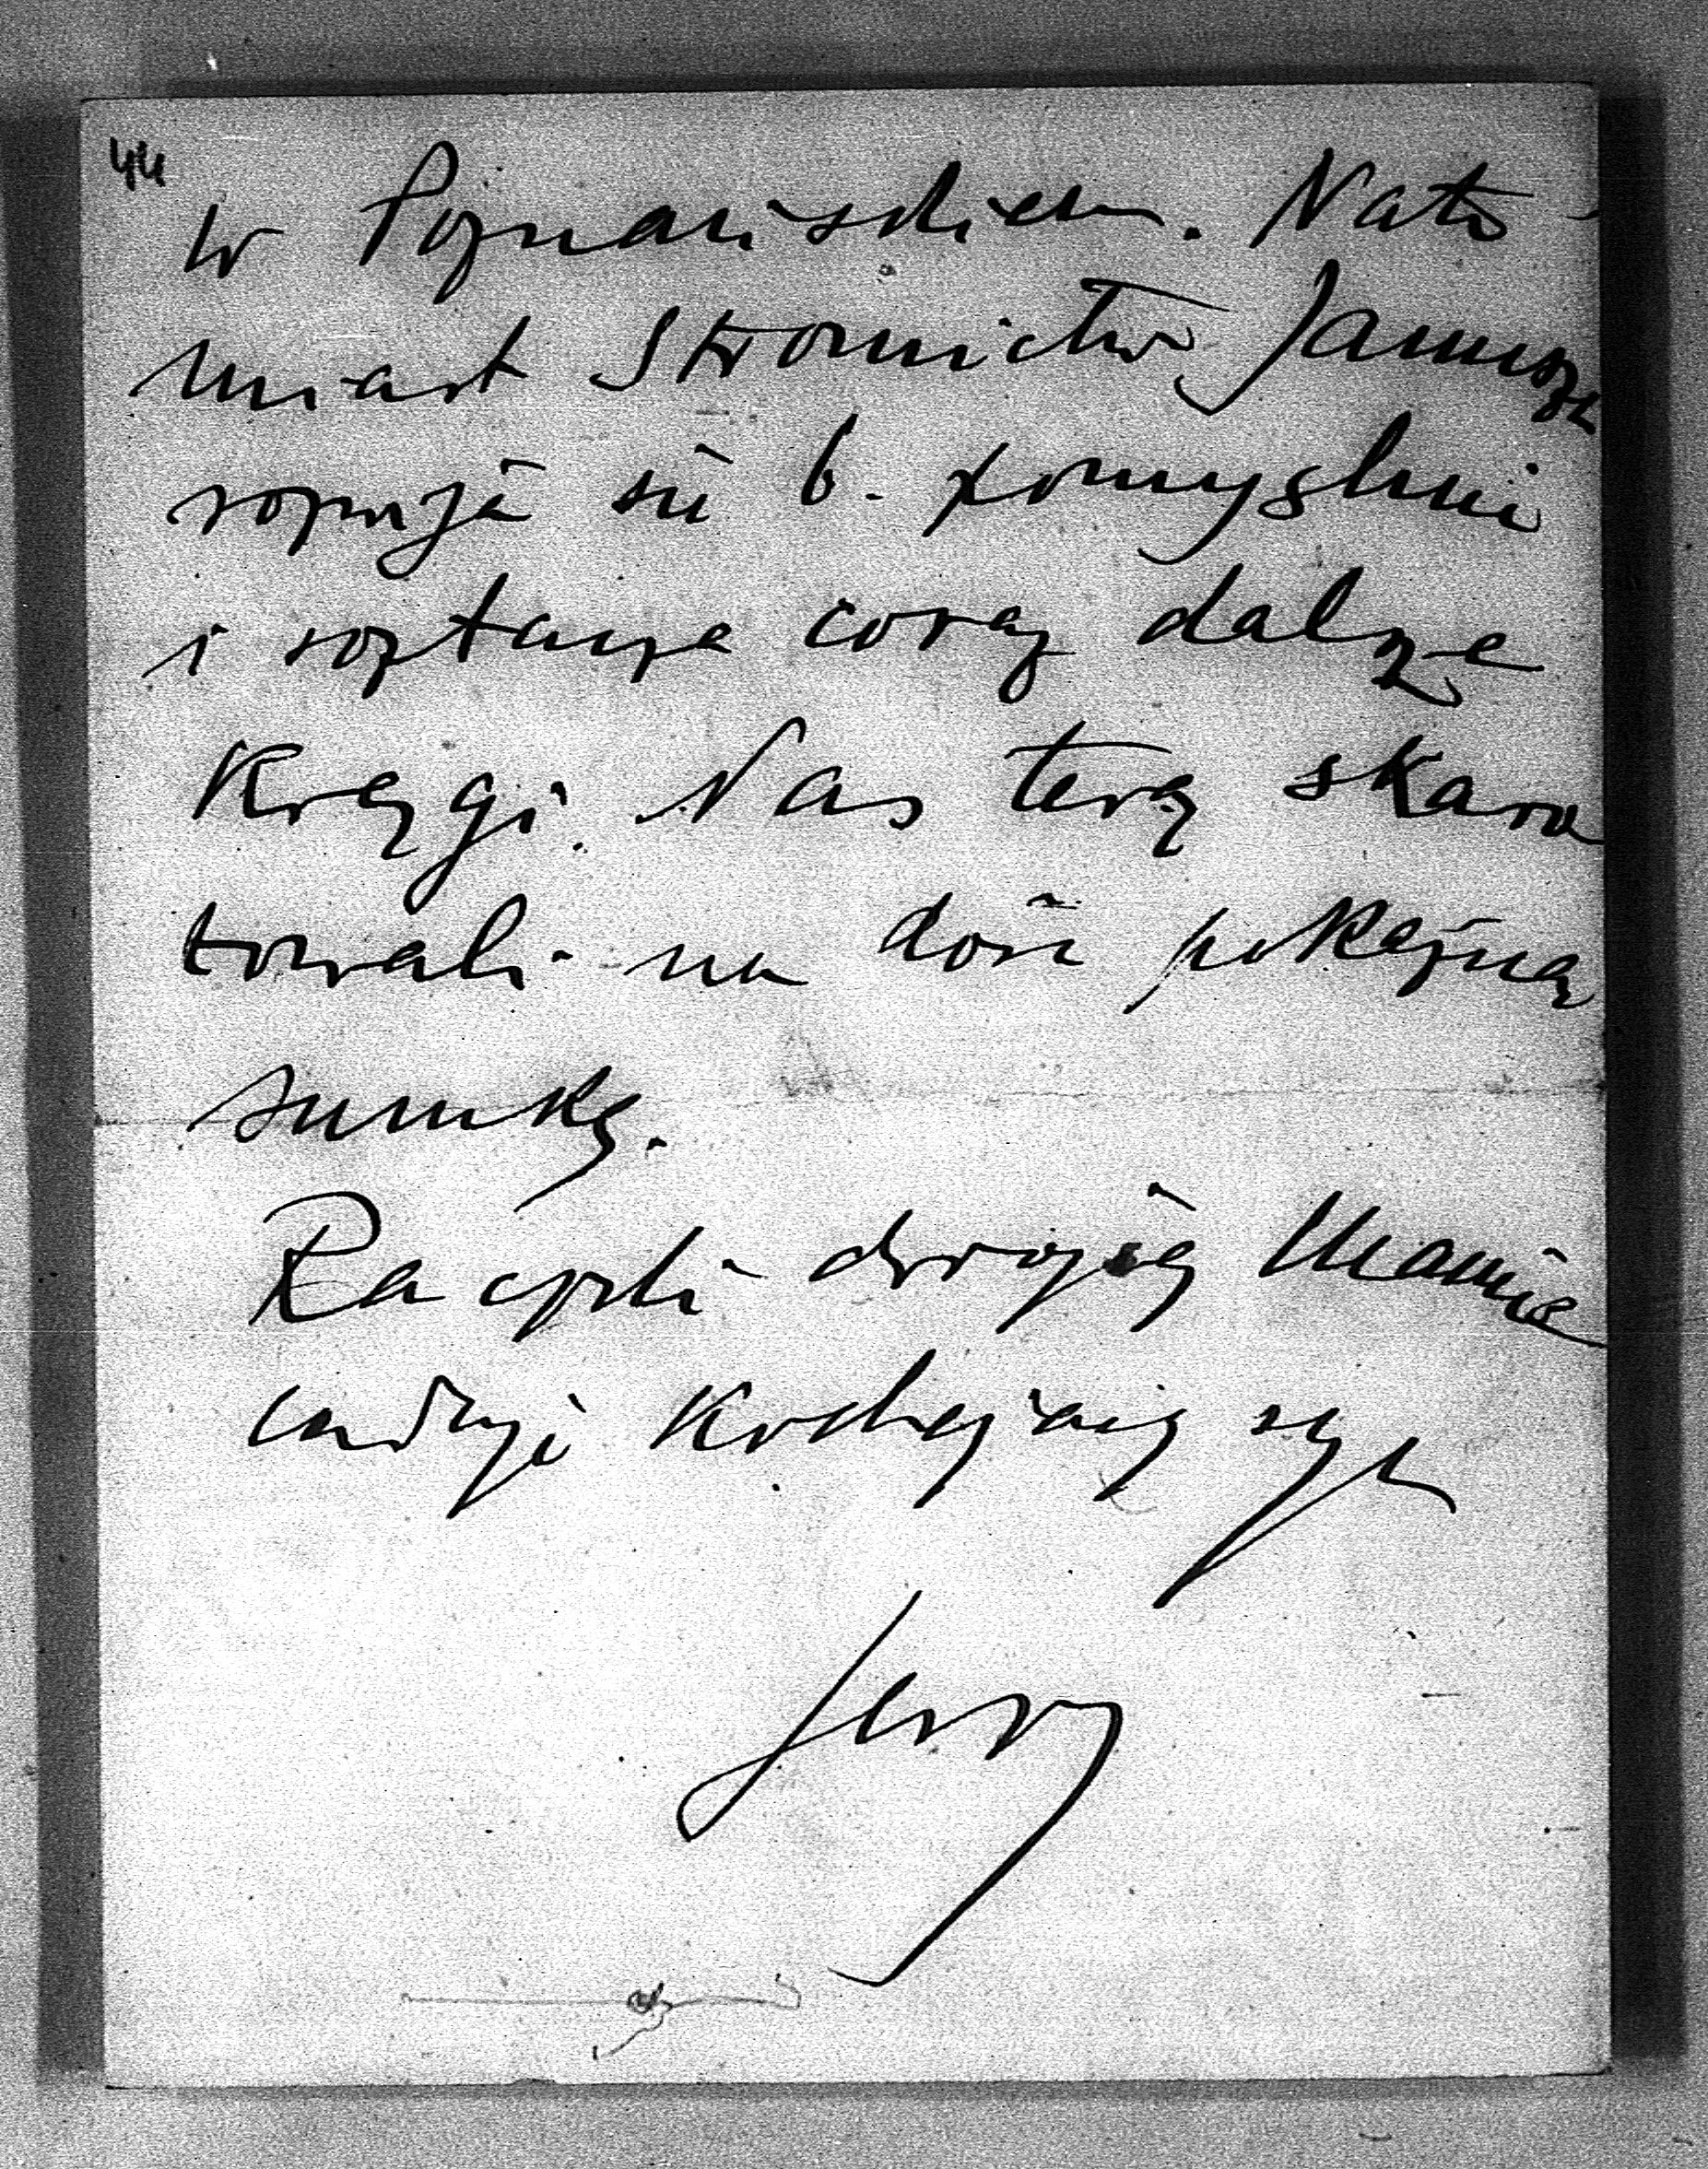 44
w Poznańskiem. Nato-
miast Stronnictwo Janusza
rozwija się b. pomyślnie
i zatacza coraz dalsze
Kręgi. Nas teraz skara
towali na dość pokaźną
sumkę.
Rączki drogiej Mamie
całuję Kochający syn
Jerzy